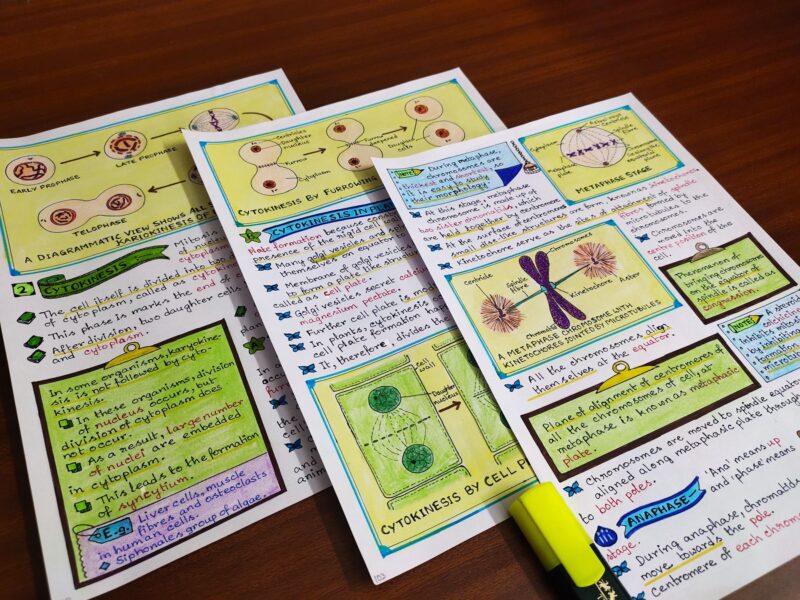 EARLY PROPHASE
LATE PROPHASE
TELOPHASE
A DIAGRAMMATIC VIEW SHOWS ALL
KARIOKINESIS OF
2 CYTOKINESIS
The cell itself is divided into
of cytoplasm, called as cytok
This phase is marks the end of
After division, two daughter cells
and cytoplasm.
In some organisms, karyokine-
sis is not followed by cyto-
kinesis.
In these organisms, division
of nucleus occurs, but
division of cytoplasm does
not occur.
As a result, large number
of nuclei are embedded
in cytoplasm.
This leads to the formation
of syncytium.
E.g. Liver cells, muscle
fibres and osteoclasts
in human cells.
Siphonales group of algae.
Centrioles
Daughter
nucleus
Furrow
Cytoplasm
Furrow
Daughter
cells
CYTOKINESIS BY FURROWING
CYTOKINESIS IN PL
Plate formation because
presence of the rigid cell
Many golgi vesicles
themselves on equator
Membrane of golgi vesicles
to form a plate like struc
called as cell plate.
Golgi vesicles secret calci
magnesium pectate.
Further cell plate is
In plants, cytokinesis
cell plate formation has
It, therefore, divides th
Cell
wall
Daughter
nucleus
CYTOKINESIS BY CELL P
NOTE During metaphase,
chromosomes are
thickest and shortest, so
it is easy to study
their morphology.
Cytoplasm
Metaphase
plate
Spindle
fibre
METAPHASE STAGE
At this stage, metaphase
chromosome is made up of
two sister chromatids, which
are held together by centromere
At the surface of centromere are
small disc structures are form, known as kinetochores
Kinetochore serve as the sites of attachment of spindle
fibres formed by
microtubules to the
chromosomes.
Chromosomes are
moved into the
centre position of the
cell.
Centriole
Spindle
fibre
Chromosomes
Kinetochore
Aster
Chromatid
A METAPHASE CHROMOSOME WITH
KINETOCHORES JOINTED BY MICROTUBULES
Phenomenon of
bringing chromosomes
on the equator of
the spindle is called as
congression.
NOTE
All the chromosomes align
themselves at the equator.
Plane of alignment of centromeres of
all the chromosomes of cell, at
metaphase is known as metaphasic
plate.
Chromosomes are moved to spindle equator
aligned along metaphasic plate through
to both poles.
ANAPHASE:- 'Ana' means up
and 'phase' means
stage.
During anaphase, chromatids
move towards the pole.
centromere of each chromo